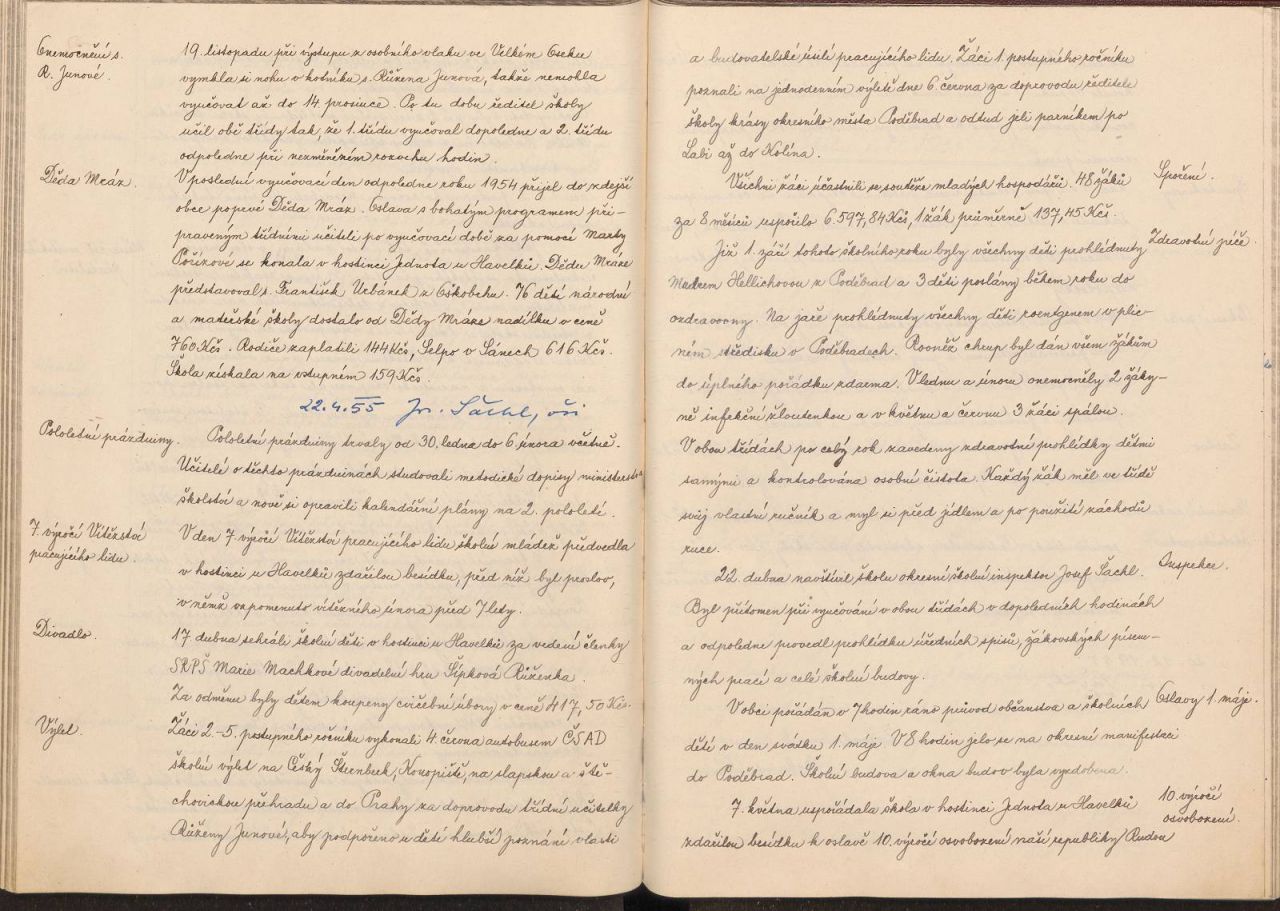 Onemocnění s.
R. Junové.
19. listopadu při výstupu z osobního vlaku ve Velkém Oseku
vymkla si nohu v kotníku s. Růžena Junová, takže nemohla
vyučovat až do 14. prosince. Po tu dobu ředitel školy
učil obě třídy tak, že 1. třídu vyučoval dopoledne a 2. třídu
odpoledne při nezměněném rozvrhu hodin.
Děda Mráz.
V poslední vyučovací den odpoledne roku 1954 přijel do zdejší
obce poprvé Děda Mráz. Oslava s bohatým programem při-
praveným třídními učiteli po vyučovací době za pomoci Marty
Pořízové se konala v hostinci Jednota u Havelků. Dědu Mráze
představoval s. František Urbánek z Oškobrhu. 76 dětí národní
a mateřské školy dostalo od Dědy Mráze nadílku v ceně
760 Kčs. Rodiče zaplatili 144 Kčs, Selpo v Sánech 616 Kčs.
Škola získala na vstupném 159 Kčs.
22.4.55 Jos. Šáchl, oši
Pololetní prázdniny.
Pololetní prázdniny trvaly od 30. ledna do 6. února včetně.
Učitelé o těchto prázdninách studovali metodické dopisy ministerstva
školství a nově si opravili kalendářní plány na 2. pololetí.
7. výročí Vítězství
pracujícího lidu.
V den 7. výročí Vítězství pracujícího lidu školní mládež předvedla
v hostinci u Havelků zdařilou besídku, před níž byl proslov,
v němž vzpomenuto vítězného února před 7 lety.
Divadlo.
17. dubna sehráli školní děti v hostinci u Havelků za vedení členky
SRPŠ Marie Machkové divadelní hru Šípková Růženka.
Za odměnu byly dětem koupeny cvičební úbory v ceně 417,50 Kčs.
Výlet.
Žáci 2.-5. postupného ročníku vykonali 4. června autobusem ČSAD
školní výlet na Český Šternberk, Konopiště, na slapskou a ště-
chovickou přehradu a do Prahy za doprovodu třídní učitelky
Růženy Junové, aby podpořeno u dětí hlubší poznání vlasti
a budovatelské úsilí pracujícího lidu. Žáci 1. postupného ročníku
poznali na jednodenním výletě dne 6. června za doprovodu ředitele
školy krásy okresního města Poděbrad a odtud jeli parníkem po
Labi až do Kolína.
Spoření.
Všichni žáci účastnili se soutěže mladých hospodářů. 48 žáků
za 8 měsíců uspořilo 6.597,84 Kčs, 1 žák průměrně 137,45 Kčs.
Zdravotní péče.
Již 1. září tohoto školního roku byly všechny děti prohlédnuty
Hellichovou z Poděbrad a 3 děti poslány během roku do
ozdravovny. Na jaře prohlédnuty všechny děti roentgenem v plic-
ném středisku v Poděbradech. Rovněž chrup byl dán všem žákům
do úplného pořádku zdarma. V lednu a únoru onemocněly 2 žáky-
ně infekční žloutenkou a v květnu a červnu 3 žáci spálou.
V obou třídách po celý rok zavedeny zdravotní prohlídky dětmi
samými a kontrolována osobní čistota. Každý žák měl ve třídě
svůj vlastní ručník a myl si před jídlem a po použití záchodů
ruce.
Inspekce.
22. dubna navštívil školu okresní školní inspektor Josef Šachl.
Byl přítomen při vyučování v obou třídách v dopoledních hodinách
a odpoledne provedl prohlídku úředních spisů, žákovských písem-
ných prací a celé školní budovy.
Oslavy 1. máje.
V obci pořádán v 7 hodin ráno průvod občanstva a školních
dětí v den svátku 1. máje. V 8 hodin jelo se na okresní manifestaci
do Poděbrad. Školní budova a okna budov byla vyzdobena.
10. výročí
osvobození.
7. května uspořádala škola v hostinci Jednota u Havelků
zdařilou besídku k oslavě 10. výročí osvobození naší republiky Rudou